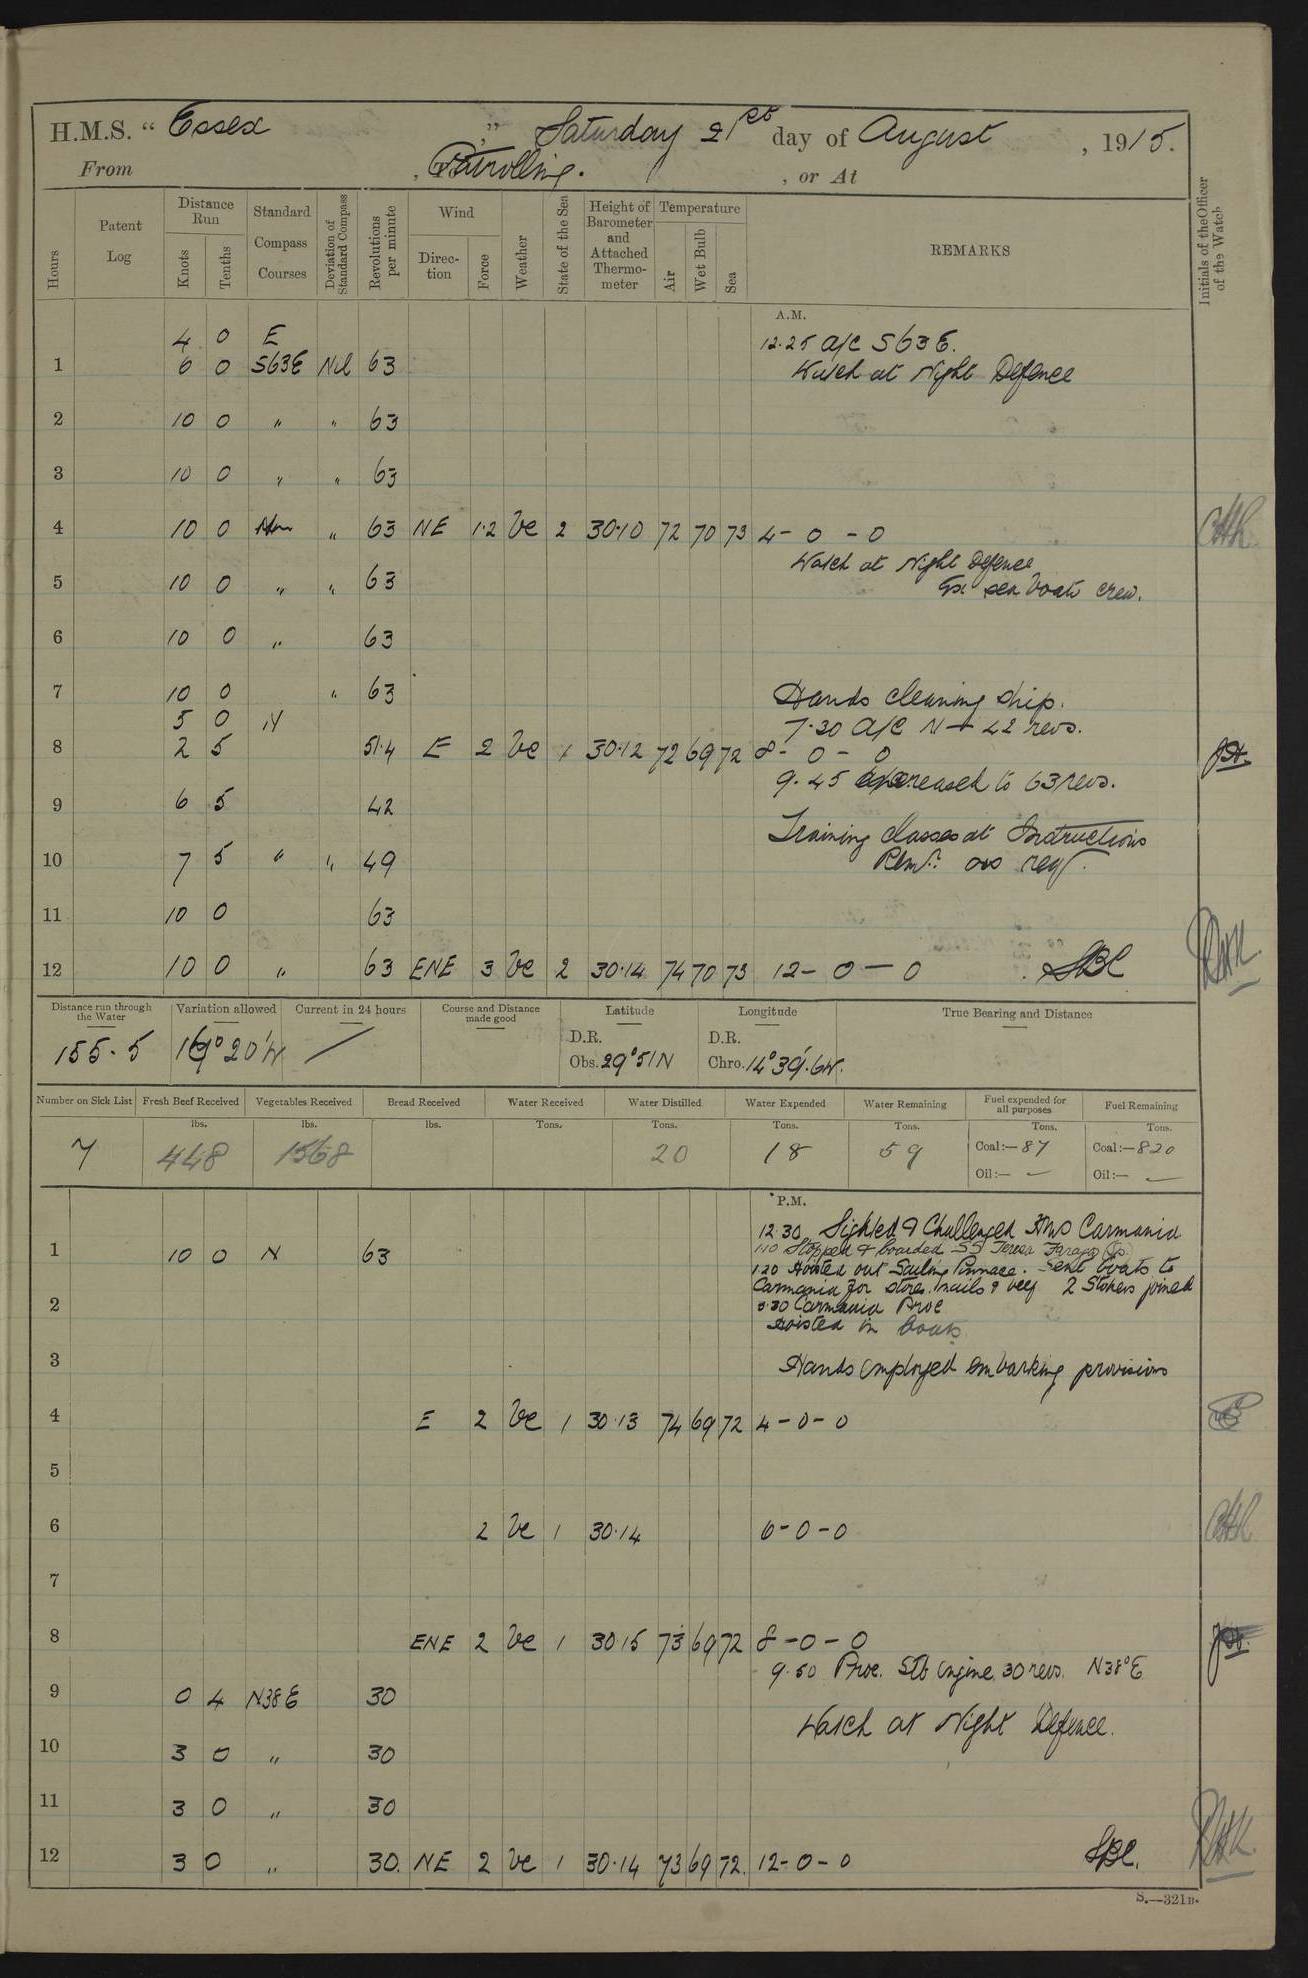 H.M.S. " Essex " Saturday 21st day of August , 1915.
From , Patrolling. , or At
Hours
Patent Log
Distance Run
Knots
Tenths
Standard Compass Courses
Deviation of Standard Compass
Revolutions per minute
Wind
Direction
Force
Weather
State of the Sea
Height of Barometer and Attached Thermometer
Temperature
Air
Wet Bulb
Sea
REMARKS
Initials of the Officer of the Watch
A.M.
4 0 E 12.25 A/C S63E.
1 6 0 S63E Nil 63 Watch at Night Defence
2 10 0 " " 63
3 10 0 " " 63
4 10 0 " 63 NE 1.2 bc 2 30.10 72 70 73 4 - 0 - 0
Watch at Night Defence
5 10 0 " " 63 Ex sea boats crew.
6 10 0 " 63
7 10 0 " 63 Hands cleaning ship.
5 0 N 7.30 A/C N + 42 revs.
8 2 5 51.4 E 2 bc 1 30.12 72 69 72 8 - 0 - 0
9.45 increased to 63 revs.
9 6 5 42
Training classes at Instructions
10 7 5 " " 49 Remr. as req.
11 10 0 63
12 10 0 " 63 ENE 3 bc 2 30.14 74 70 73 12 - 0 - 0
Distance run through the Water
Variation allowed
Current in 24 hours
Course and Distance made good
Latitude
Longitude
True Bearing and Distance
D.R. D.R.
155.5 20'W Obs. 29°51N Chro. 14°39.6W.
Number on Sick List
Fresh Beef Received
Vegetables Received
Bread Received
Water Received
Water Distilled
Water Expended
Water Remaining
Fuel expended for all purposes
Fuel Remaining
lbs. lbs. lbs. Tons. Tons. Tons. Tons. Tons. Tons.
7 448 1568 20 18 59 Coal:—87 Coal:—820
Oil:— — Oil:— —
P.M.
12.30 Sighted & Challenged HMS Carmania
1 10 0 N 63 1.10 Stopped & boarded SS Teresa
1.20 Hoisted out Sailing Pinnace. Sent boats to
Carmania for stores, mails & beef 2 Stokers joined
2 3.30 Carmania Proc
Hoisted in boats
3 Hands employed embarking provisions
4 E 2 bc 1 30.13 74 69 72 4 - 0 - 0
5
6 2 bc 1 30.14 6 - 0 - 0
7
8 ENE 2 bc 1 30.15 73 69 72 8 - 0 - 0
9.50 Proc. Stb engine, 30 revs. N38°E
9 0 4 N38E 30
Watch at Night Defence.
10 3 0 " 30
11 3 0 " 30
12 3 0 " 30. NE 2 bc 1 30.14 73 69 72. 12 - 0 - 0
S.—321B.